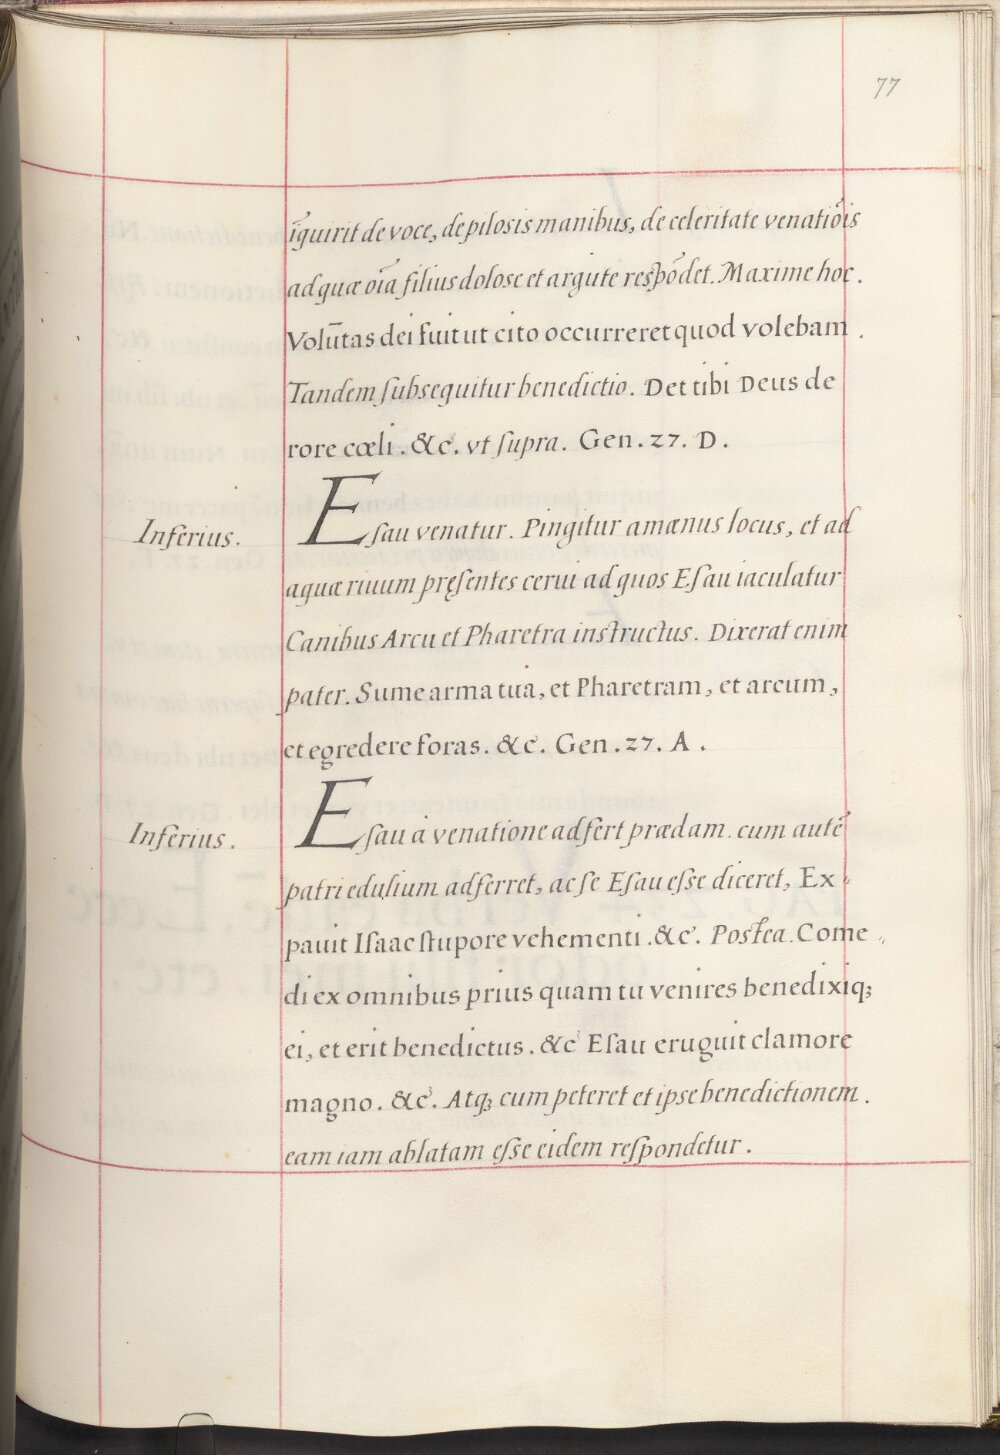 77
īquirit de voce, de pilosis manibus, de celeritate venatiōis
ad quæ oīa filius dolose et argute respōdet. Maxime hoc.
Volūtas dei fuit ut cito occurreret quod volebam.
Tandem ſubsequitur benedictio. Det tibi Deus de
rore cœli. &c. vt ſupra. Gen. 27. D.
Inferius.
Eſau venatur. Pingitur amænus locus, et ad
aquæ riuum pręſentes cerui ad quos Eſau iaculatur
Canibus Arcu et Pharetra instructus. Dixerat enim
pater. Sume arma tua, et Pharetram, et arcum,
et egredere foras. &c. Gen. 27. A.
Inferius.
Eſau à venatione adfert prædam. cum autē
patri edulium adferret, ac ſe Eſau eſse diceret, Ex-
pauit Iſaac ſtupore vehementi. &c. Postea. Come-
di ex omnibus prius quam tu venires benedixiq;
ei, et erit benedictus. &c Eſau erugiit clamore
magno. &c. Atq; cum peteret et ipse benedictionem.
eam iam ablatam eſse eidem reſpondetur.